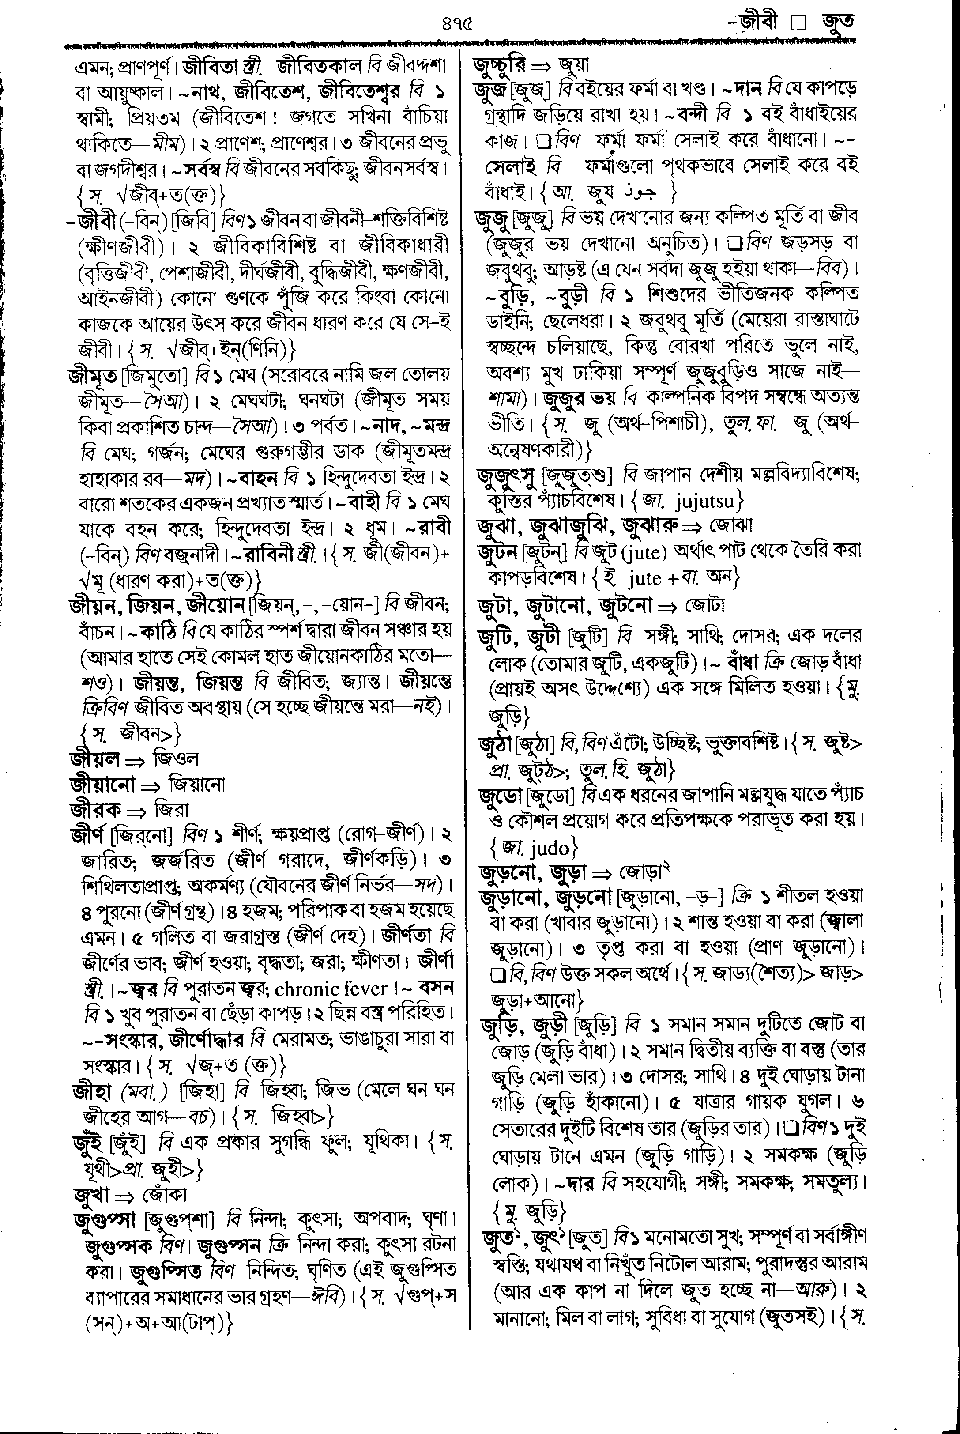 ৪৭৫
-জীবী □ জুত
এমন; প্রাণপূর্ণ। জীবিতা স্ত্রী. জীবিতকাল বি জীবদ্দশা
বা আয়ুষ্কাল। ~নাথ, জীবিতেশ, জীবিতেশ্বর বি ১
স্বামী; প্রিয়তম (জীবিতেশ! জগতে সখিনা বাঁচিয়া
থাকিতে—মীম)। ২ প্রাণেশ; প্রাণেশ্বর। ৩ জীবনের প্রভু
বা জগদীশ্বর। ~সর্বস্ব বি জীবনের সবকিছু; জীবনসর্বস্ব।
{স. √জীব+ত(ক্ত)}
-জীবী (–বিন্) [জিবি] বিণ ১ জীবন বা জীবনী-শক্তিবিশিষ্ট
(ক্ষীণজীবী)। ২ জীবিকাবিশিষ্ট বা জীবিকাধারী
(বৃত্তিজীবী, পেশাজীবী, দীর্ঘজীবী, বুদ্ধিজীবী, ক্ষণজীবী,
আইনজীবী) কোনো গুণকে পুঁজি করে কিংবা কোনো
কাজকে আয়ের উৎস করে জীবন ধারণ করে যে সে-ই
জীবী। {স. √জীব্+ইন(ণিনি)}
জীমূত [জিমুতো] বি ১ মেঘ (সরোবরে নামি জল তোলয়
জীমূত—সৈআ)। ২ মেঘঘটা; ঘনঘটা (জীমূত সময়
কিবা প্রকাশিত চান্দ—সৈআ)। ৩ পর্বত। ~নাদ, ~মন্দ্র
বি মেঘ; গর্জন; মেঘের গুরুগম্ভীর ডাক (জীমূতমন্দ্র
হাহাকার রব—মদ)। ~বাহন বি ১ হিন্দুদেবতা ইন্দ্র। ২
বারো শতকের একজন প্রখ্যাত স্মার্ত। ~বাহী বি ১ মেঘ
যাকে বহন করে; হিন্দুদেবতা ইন্দ্র। ২ ধূম। ~রাবী
(–বিন্) বিণ বজ্রনাদী। ~রাবিনী স্ত্রী.। {স. জী(জীবন)+
√মূ (ধারণ করা)+ত(ক্ত)}
জীয়ন, জিয়ন, জীয়োন [জিয়ন্, -, –য়োন্-] বি জীবন;
বাঁচন। ~কাঠি বি যে কাঠির স্পর্শ দ্বারা জীবন সঞ্চার হয়
(আমার হাতে সেই কোমল হাত জীয়োনকাঠির মতো—
শও)। জীয়ন্ত, জিয়ন্ত বি জীবিত; জ্যান্ত। জীয়ন্তে
ক্রিবিণ জীবিত অবস্থায় (সে হচ্ছে জীয়ন্তে মরা—নই)।
{স. জীবন>}
জীয়ল ⇒ জিওল
জীয়ানো ⇒ জিয়ানো
জীরক ⇒ জিরা
জীর্ণ [জির্‌নো] বিণ ১ শীর্ণ; ক্ষয়প্রাপ্ত (রোগ-জীর্ণ)। ২
জারিত; জর্জরিত (জীর্ণ গরাদে, জীর্ণকড়ি)। ৩
শিথিলতাপ্রাপ্ত; অকর্মণ্য (যৌবনের জীর্ণ নির্ভর—সদ)।
৪ পুরনো (জীর্ণ গ্রন্থ)। ৪ হজম; পরিপাক বা হজম হয়েছে
এমন। ৫ গলিত বা জরাগ্রস্ত (জীর্ণ দেহ)। জীর্ণতা বি
জীর্ণের ভাব; জীর্ণ হওয়া; বৃদ্ধতা; জরা; ক্ষীণতা। জীর্ণা
স্ত্রী.। ~জ্বর বি পুরাতন জ্বর; chronic fever। ~বসন
বি ১ খুব পুরাতন বা ছেঁড়া কাপড়। ২ ছিন্ন বস্ত্র পরিহিত।
~-সংস্কার, জীর্ণোদ্ধার বি মেরামত; ভাঙাচুরা সারা বা
সংস্কার। {স. √জৃ+ত (ক্ত)}
জীহা (মবা.) [জিহা] বি জিহ্বা; জিভ (মেলে ঘন ঘন
জীহের আগ—বচ)। {স. জিহ্বা>}
জুঁই [জুঁই] বি এক প্রকার সুগন্ধি ফুল; যূথিকা। {স.
যূথী>প্রা. জুহী>}
জুখা ⇒ জোঁকা
জুগুপ্সা [জুগুপ্‌শা] বি নিন্দা; কুৎসা; অপবাদ; ঘৃণা।
জুগুপ্সক বিণ। জুগুপ্সন ক্রি নিন্দা করা; কুৎসা রটনা
করা। জুগুপ্সিত বিণ নিন্দিত; ঘৃণিত (এই জুগুপ্সিত
ব্যাপারের সমাধানের ভার গ্রহণ—ঈবি)। {স. √গুপ্+স
(সন্)+অ+আ(টাপ্)}
জুচ্চুরি ⇒ জুয়া
জুজ [জুজ্] বি বইয়ের ফর্মা বা খণ্ড। ~দান বি যে কাপড়ে
গ্রন্থাদি জড়িয়ে রাখা হয়। ~বন্দী বি ১ বই বাঁধাইয়ের
কাজ। □ বিণ ফর্মা ফর্মা সেলাই করে বাঁধানো। ~-
সেলাই বি ফর্মাগুলো পৃথকভাবে সেলাই করে বই
বাঁধাই। {আ. জুয جوز }
জুজু [জুজু] বি ভয় দেখানোর জন্য কল্পিত মূর্তি বা জীব
(জুজুর ভয় দেখানো অনুচিত)। □ বিণ জড়সড় বা
জবুথবু; আড়ষ্ট (এ যেন সর্বদা জুজু হইয়া থাকা—বিব)।
~বুড়ি, ~বুড়ী বি ১ শিশুদের ভীতিজনক কল্পিত
ডাইনি; ছেলেধরা। ২ জবুথবু মূর্তি (মেয়েরা রাস্তাঘাটে
স্বচ্ছন্দে চলিয়াছে, কিন্তু বোরখা পরিতে ভুলে নাই,
অবশ্য মুখ ঢাকিয়া সম্পূর্ণ জুজুবুড়িও সাজে নাই—
শামা)। জুজুর ভয় বি কাল্পনিক বিপদ সম্বন্ধে অত্যন্ত
ভীতি। {স. জূ (অর্থ-পিশাচী), তুল. ফা. জু (অর্থ-
অন্বেষণকারী)}
জুজুৎসু [জুজুত্‌শু] বি জাপান দেশীয় মল্লবিদ্যাবিশেষ;
কুস্তির প্যাঁচবিশেষ। {জা. jujutsu}
জুঝা, জুঝাজুঝি, জুঝারু ⇒ জোঝা
জুটন [জুটন্] বি জুট (jute) অর্থাৎ পাট থেকে তৈরি করা
কাপড়বিশেষ। {ই jute +বা. অন}
জুটা, জুটানো, জুটনো ⇒ জোটা
জুটি, জুটী [জুটি] বি সঙ্গী; সাথি; দোসর; এক দলের
লোক (তোমার জুটি, একজুটি)। ~ বাঁধা ক্রি জোড় বাঁধা
(প্রায়ই অসৎ উদ্দেশ্যে) এক সঙ্গে মিলিত হওয়া। {মু.
জুড়ি}
জুঠা [জুঠা] বি, বিণ এঁটো; উচ্ছিষ্ট; ভুক্তাবশিষ্ট। {স. জুষ্ট>
প্রা. জুট্‌ঠ>; তুল. হি. জুঠা}
জুডো [জুডো] বি এক ধরনের জাপানি মল্লযুদ্ধ যাতে প্যাঁচ
ও কৌশল প্রয়োগ করে প্রতিপক্ষকে পরাভূত করা হয়।
{জা. judo}
জুড়নো, জুড়া ⇒ জোড়া২
জুড়ানো, জুড়নো [জুড়ানো, –ড়-] ক্রি ১ শীতল হওয়া
বা করা (খাবার জুড়ানো)। ২ শান্ত হওয়া বা করা (জ্বালা
জুড়ানো)। ৩ তৃপ্ত করা বা হওয়া (প্রাণ জুড়ানো)।
□ বি, বিণ উক্ত সকল অর্থে। {স. জাড্য(শৈত্য)> জাড়>
জুড়া+আনো}
জুড়ি, জুড়ী [জুড়ি] বি ১ সমান সমান দুটিতে জোট বা
জোড় (জুড়ি বাঁধা)। ২ সমান দ্বিতীয় ব্যক্তি বা বস্তু (তার
জুড়ি মেলা ভার)। ৩ দোসর; সাথি। ৪ দুই ঘোড়ায় টানা
গাড়ি (জুড়ি হাঁকানো)। ৫ যাত্রার গায়ক যুগল। ৬
সেতারের দুইটি বিশেষ তার (জুড়ির তার)। □ বিণ ১ দুই
ঘোড়ায় টানে এমন (জুড়ি গাড়ি)। ২ সমকক্ষ (জুড়ি
লোক)। ~দার বি সহযোগী; সঙ্গী; সমকক্ষ; সমতুল্য।
{মু. জুড়ি}
জুত১, জুৎ১ [জুত্] বি ১ মনোমতো সুখ; সম্পূর্ণ বা সর্বাঙ্গীণ
স্বস্তি; যথাযথ বা নিখুঁত নিটোল আরাম; পুরাদস্তুর আরাম
(আর এক কাপ না দিলে জুত হচ্ছে না—আরু)। ২
মানানো; মিল বা লাগ; সুবিধা বা সুযোগ (জুতসই)। {স.